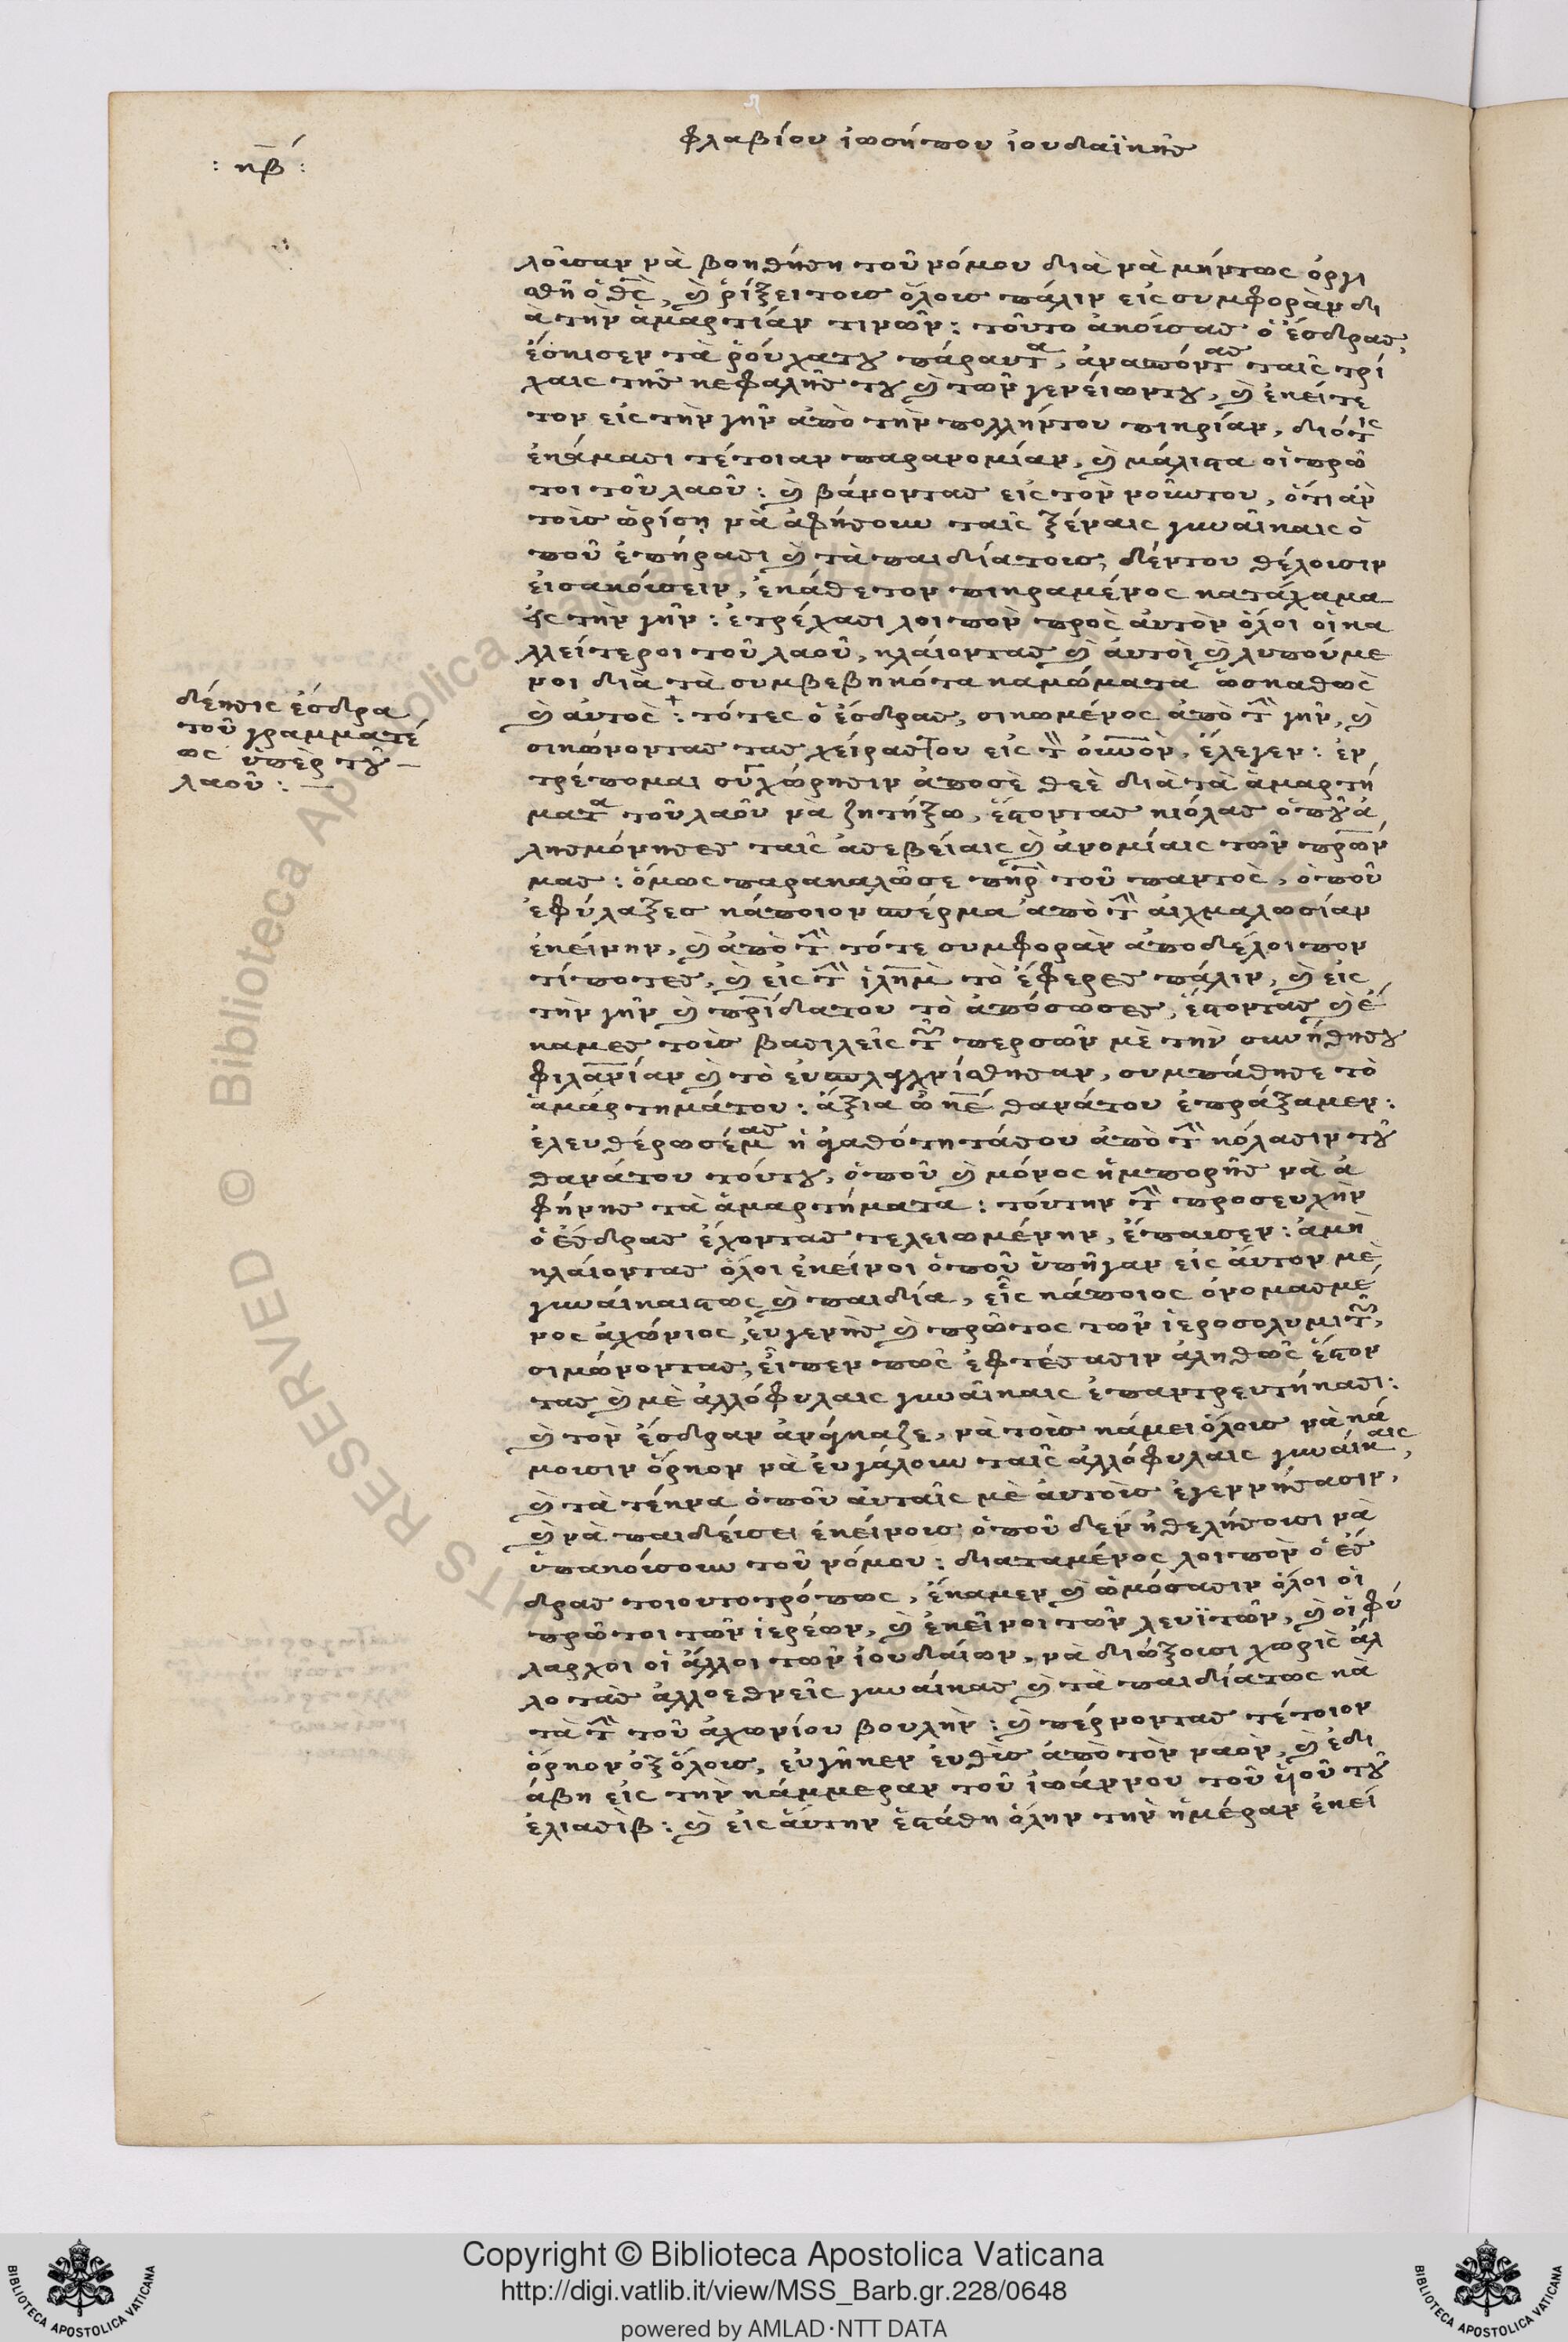 φλαβίου ἰωσήπου ἰουδαϊκῆσ
: κβ :
λοῦσαν νὰ βοηθήση τοῦ νόμου διὰ νὰ μήντως ὀργι
σθῆ ὁ θς̀, καὶ ῥίξει τουσ ὅλουσ πάλιν εἰς συμφορὰν δι
ὰ τὴν ἁμαρτίαν τινῶν: τοῦτο ἀκούσασ ὁ ἔσδρασ,
ἔσκισεν τὰ ῥούχατου πάραυτα, ἀνασπόντασ ταῖς τρί
χαις τῆσ κεφαλῆσ του καὶ τῶν γενείωντου, καὶ ἐκείτε
τον εἰς τὴν γῆν ἀπὸ τὴν πολλήντου πικρίαν, διότις
ἐκάμασι τέτοιαν παρανομίαν, καὶ μάλιστα οἱ πρῶ
τοι τοῦ λαοῦ: καὶ βάνοντασ εἰς τὸν νοῦντου, ὅτι ἀν
τοὺσ ὡρίση νὰ ἀφήσουν ταῖς ξέναις γυναίκαις ὁ
ποῦ ἐπήρασι καὶ τὰ παιδίατουσ, δέντου θέλουσιν
εἰσακούσειν, ἐκάθετον πικραμένος κατάχαμα
εἰς τὴν γῆν: ἐτρέχασι λοιπὸν πρὸς αὐτὸν ὅλοι οἱ κα
λλείτεροι τοῦ λαοῦ, κλαίοντασ καὶ αὐτοὶ καὶ λυπούμε
νοι διὰ τὰ συμβεβηκότα καμώματα ὡσκαθὼς
καὶ αὐτὸς +: τότες ὁ ἔσδρασ, σικωμένος ἀπὸ τὴν γῆν, καὶ
σικώνοντασ τασ χεῖρασ του εἰς τὸν οὐνὸν, ἔλεγεν: ἐν
τρέπομαι συγχώρησιν ἀποσὲ θεὲ διὰ τὰ ἁμαρτή
ματα τοῦ λαοῦ νὰ ζητήξω, ἔστοντασ κιόλασ ὁποῦ ἀ
λησμόνησεσ ταῖς ἀσεβείαις καὶ ἀνομίαις τῶν πρων
μασ: ὅμως παρακαλῶσε πηρ τοῦ παντὸς, ὁποῦ
ἐφύλαξεσ κάποιον σπέρμα ἀπὸ τὴν αἰχμαλωσίαν
ἐκείνην, καὶ ἀπὸ τὴν τότε συμφορὰν ἀποδέλοιπον
τίποτεσ, καὶ εἰς τὴν ἰλημ τὸ ἔφερεσ πάλιν, καὶ εἰς
τὴν γῆν καὶ πρίδατου τὸ ἀπόσωσεσ, ἔστοντασ καὶ ἔ
καμεσ τοὺσ βασιλεῖς τῶν περσῶν μὲ τὴν συνήθησου
φιλανίαν καὶ τὸ εὐσπλαχνίσθησαν, συμπάθησε τὸ
ἁμάρτημάτου: ἄξια ὦ κε θανάτου ἐπράξαμεν:
ἐλευθέρωσέμασ ἡ ἀγαθότητάσου ἀπὸ τὴν κόλασιν τοῦ
θανάτου τούτου, ὁποῦ καὶ μόνος ἠμπορῆσ νὰ ἀ
φήνησ τὰ ἁμαρτήματα: τούτην τὴν προσευχὴν
ὁ ἔσδρασ ἔχοντασ τελειωμένην, ἔπαυσεν: ἀμὴ
κλαίοντασ ὅλοι ἐκεῖνοι ὁποῦ ὑπῆγαν εἰς αὐτον μὲ
γυναίκαιςτως καὶ παιδία, εἷς κάποιος ὀνομασμέ
νος ἀχώνιος, εὐγενὴσ καὶ πρῶτος τῶν ἱεροσολυμιτῶν,
σιμώνοντασ, εἶπεν πῶς ἐφτέσασιν ἀληθῶς ἔστον
τασ καὶ μὲ ἀλλόφυλαις γυναίκαις ἐπαντρευτήκασι:
καὶ τὸν ἔσδραν ἀνάγκαζε, νὰ τοὺσ κάμει ὅλουσ νὰ κά
μουσιν ὅρκον νὰ εὐγάλουν ταῖς ἀλλόφυλαις γυναίκαις,
καὶ τὰ τέκνα ὁποῦ αὐταῖς μὲ αὐτοὺσ ἐγεννήσασιν,
καὶ νὰ παιδεύσει ἐκείνουσ ὁποῦ δεν ἠθελήσουσι νὰ
ὑπακούσουν τοῦ νόμου: διαταμένος λοιπὸν ὁ ἔσ
δρασ τοιουτοτρόπως, ἔκαμεν καὶ ὠμόσασιν ὅλοι οἱ
πρῶτοι τῶν ἱερέων, καὶ ἐκεῖνοι τῶν λευϊτῶν, καὶ οἱ φύ
λαρχοι οἱ ἄλλοι τῶν ἰουδαίων, νὰ διώξουσι χωρὶς ἄλ
λο τασ ἀλλοεθνεῖς γυναίκασ καὶ τὰ παιδίατως κα
τὰ τὴν τοῦ ἀχωνίου βουλὴν: καὶ πέρνοντασ τέτοιον
ὅρκον ὀξ ὅλουσ, εὐγῆκεν εὐθὺσ ἀπὸ τὸν ναὸν, καὶ ἐδι
άβη εἰς τὴν κάμμεραν τοῦ ἰωάννου τοῦ υἱοῦ τοῦ
ἐλιασὶβ: καὶ εἰς αὐτην ἐστάθη ὅλην τὴν ἡμέραν ἐκεί
δέησις ἔσδρα
τοῦ γραμματέ
ως ὑπὲρ τοῦ
λαοῦ:
Copyright © Biblioteca Apostolica Vaticana
http://digi.vatlib.it/view/MSS_Barb.gr.228/0648
powered by AMLAD·NTT DATA
BIBLIOTECA APOSTOLICA VATICANA
BIBLIOTECA APOSTOLICA VATICANA